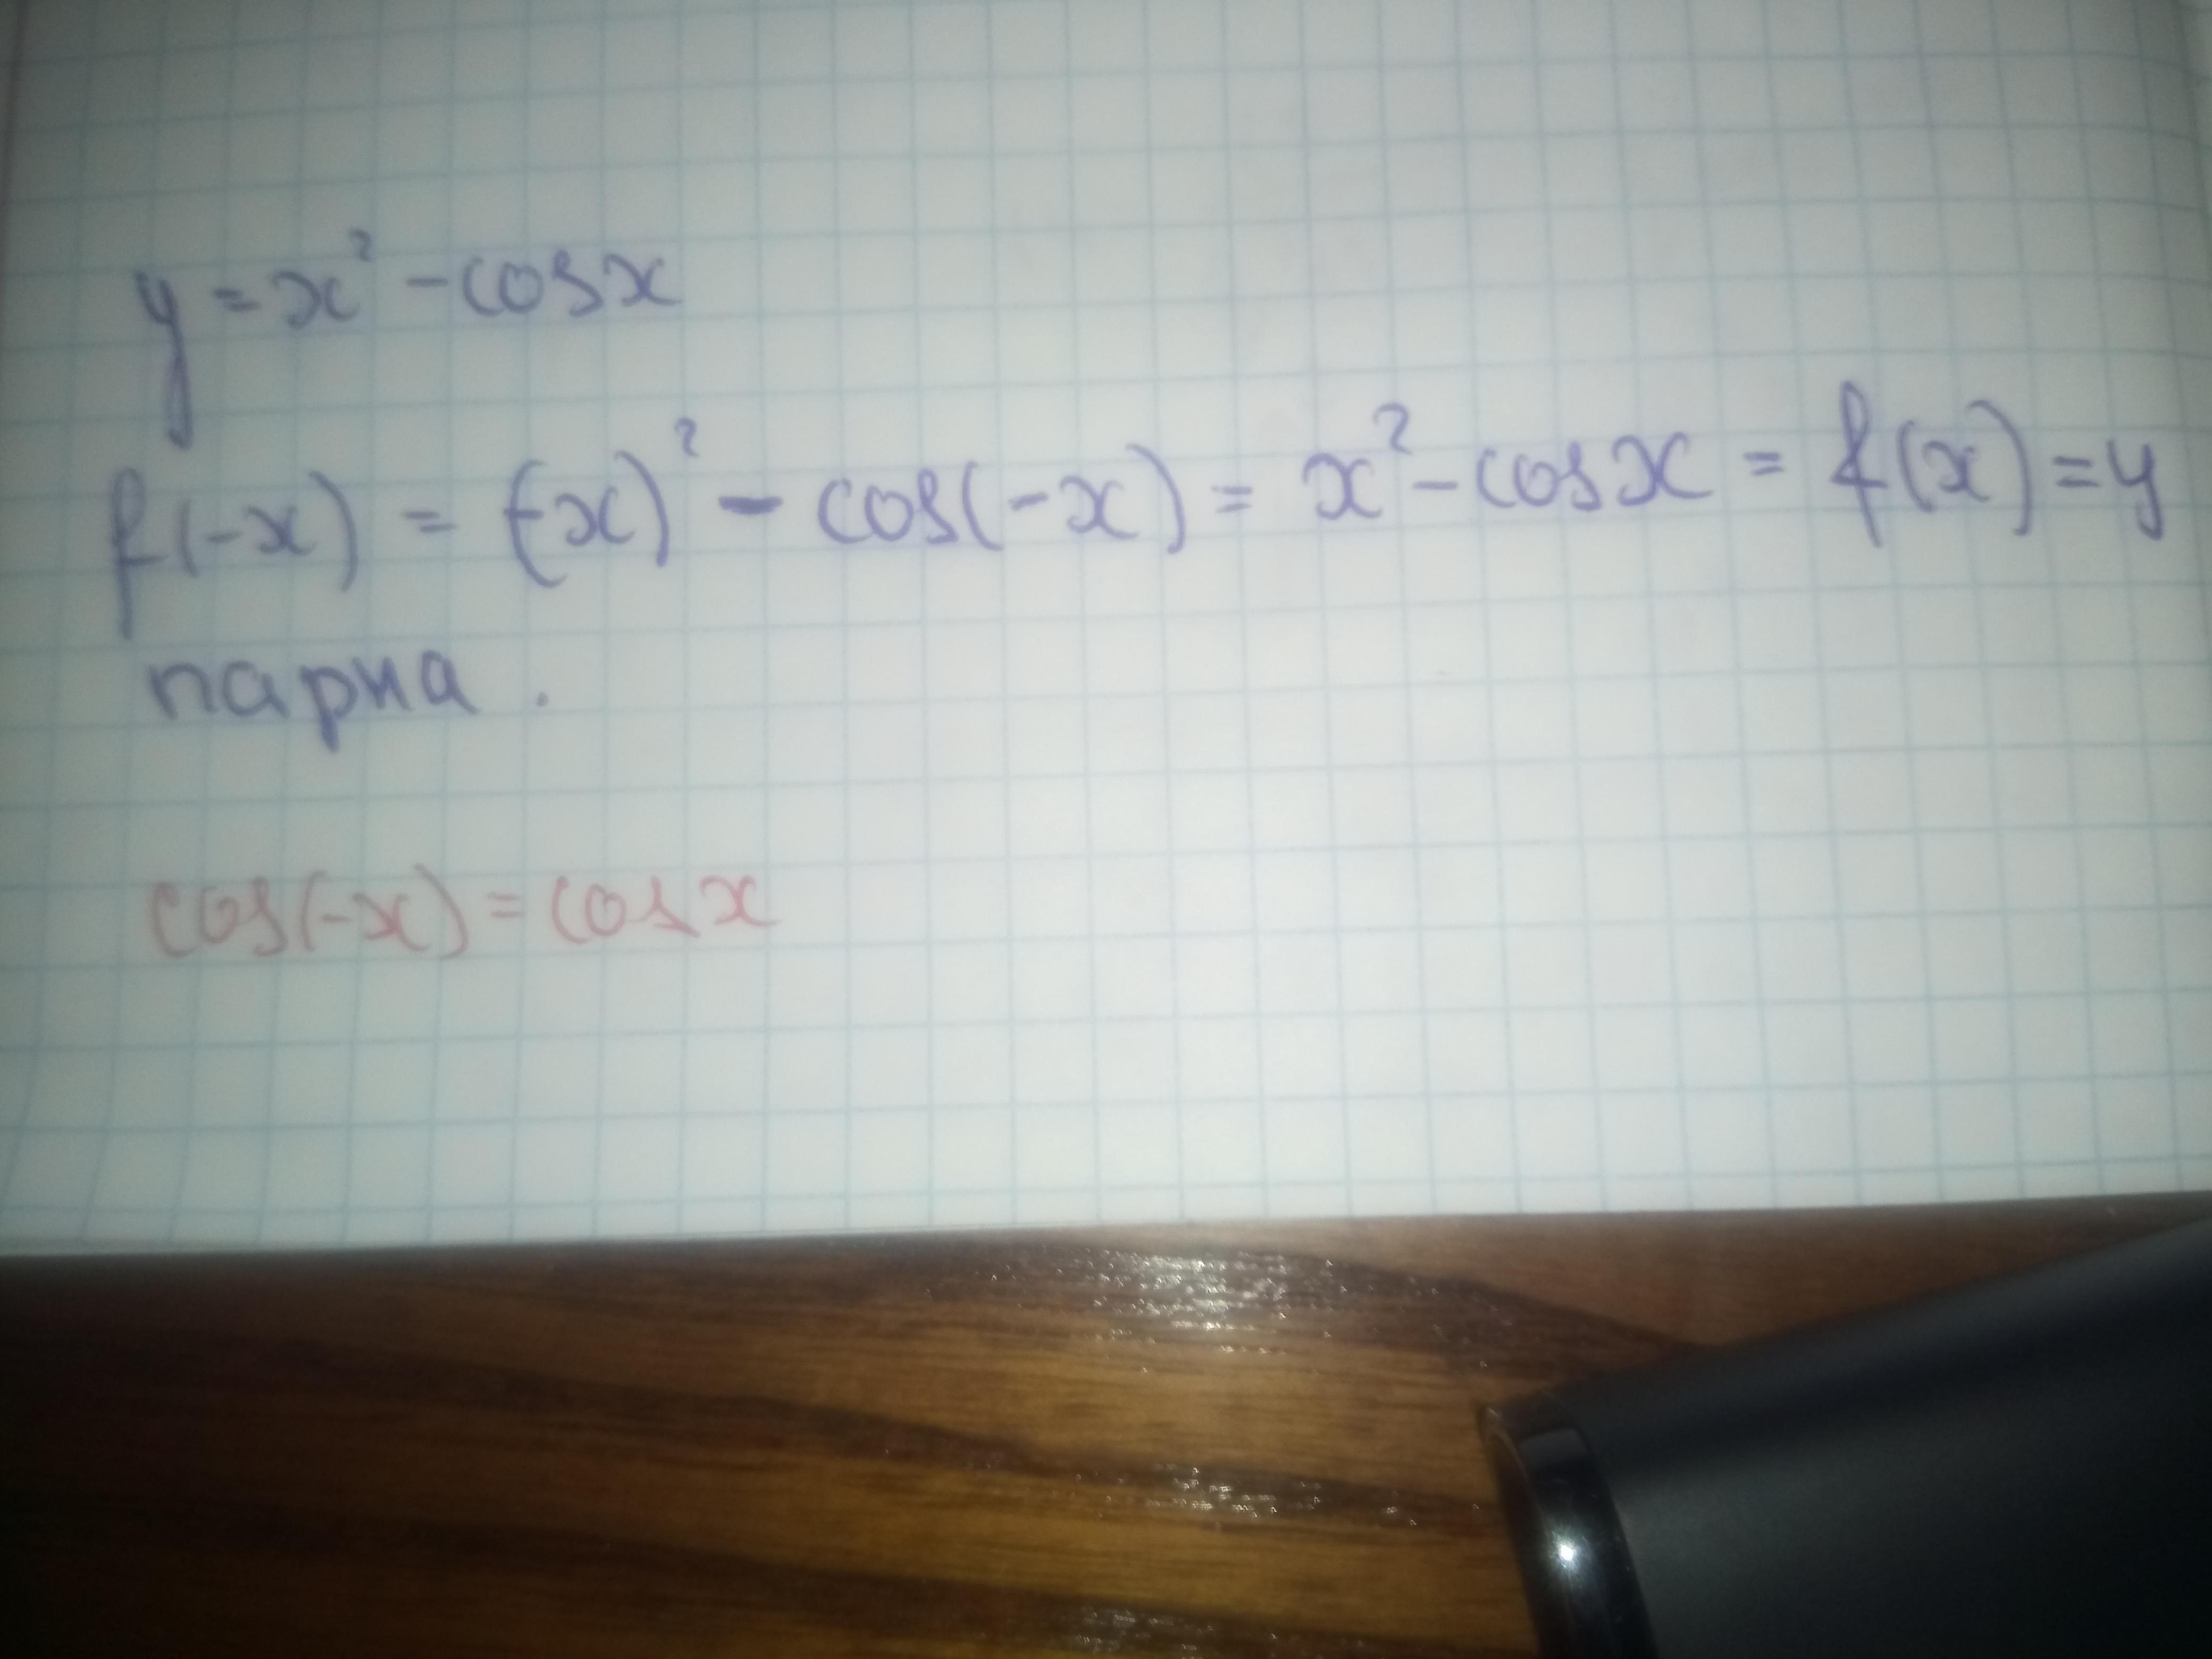 y = x² - cos x
f(-x) = (-x)² - cos(-x) = x² - cos x = f(x) = y
парна.
cos(-x) = cos x